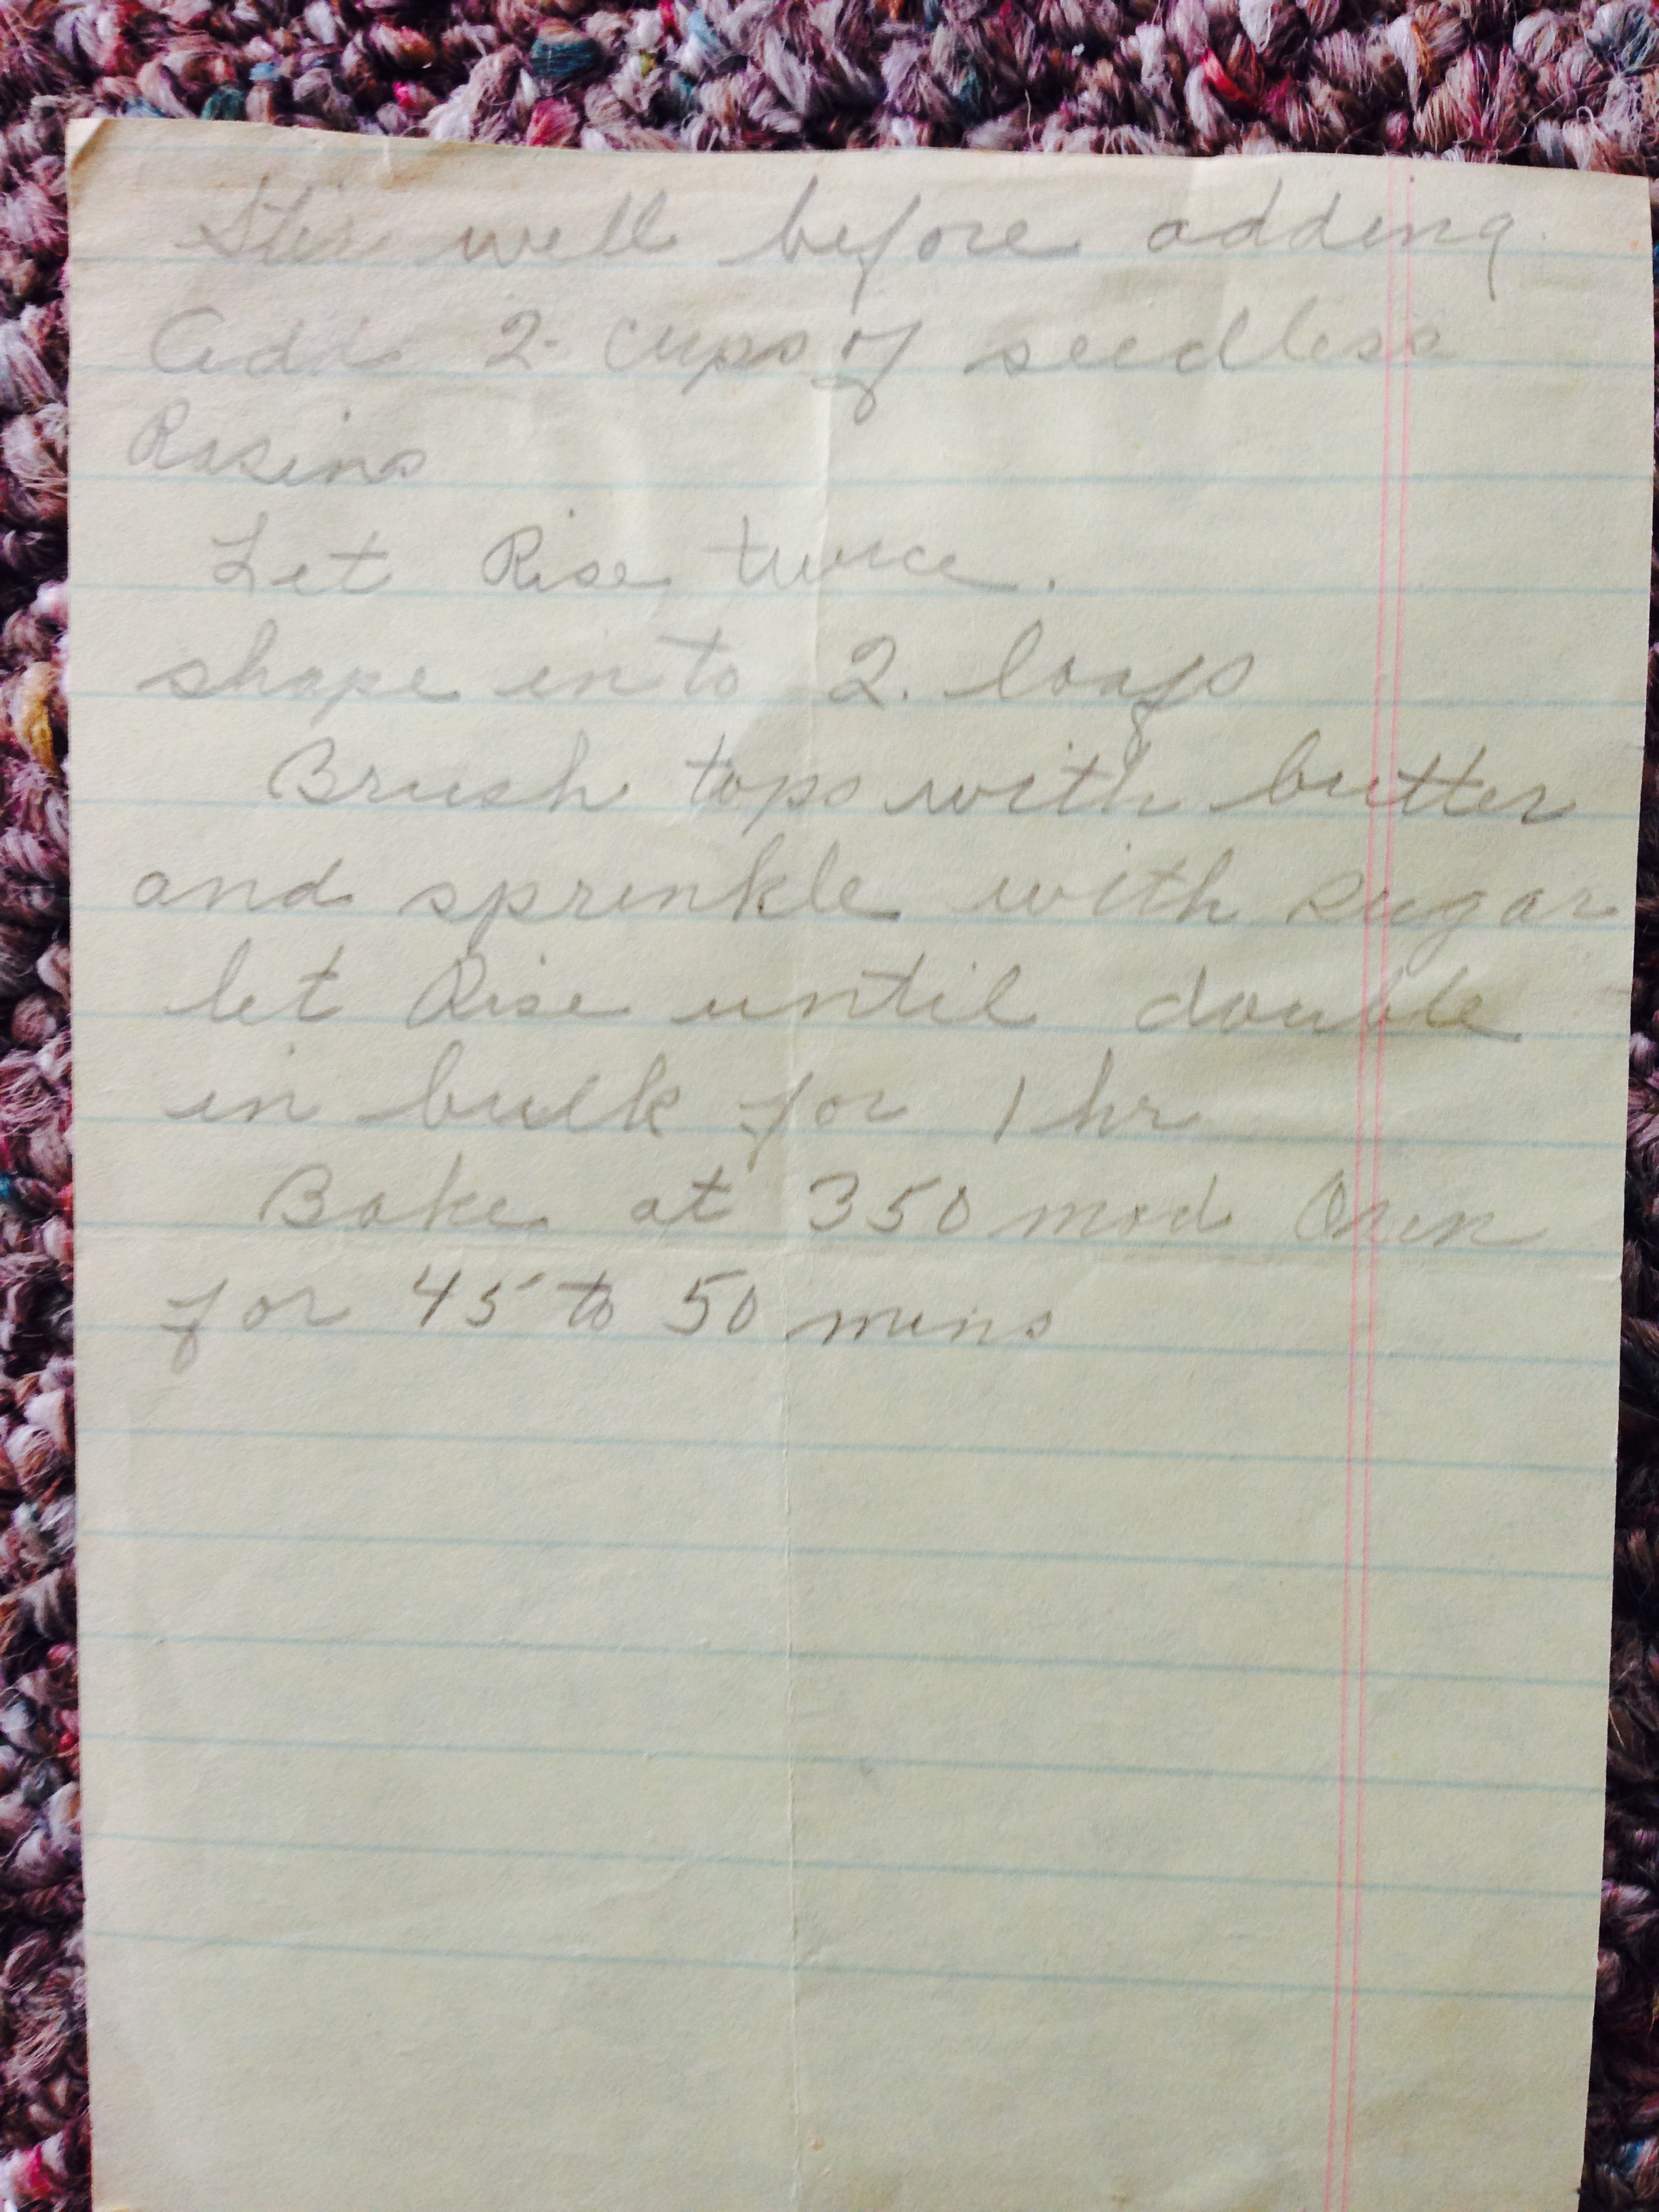 Stir well before adding
Add 2 cups of seedless
Rasins
Let Rise twice.
shape into 2. loafs
Brush tops with butter
and sprinkle with sugar
let Rise until double
in bulk for 1 hr
Bake at 350 mod Oven
for 45 to 50 mins